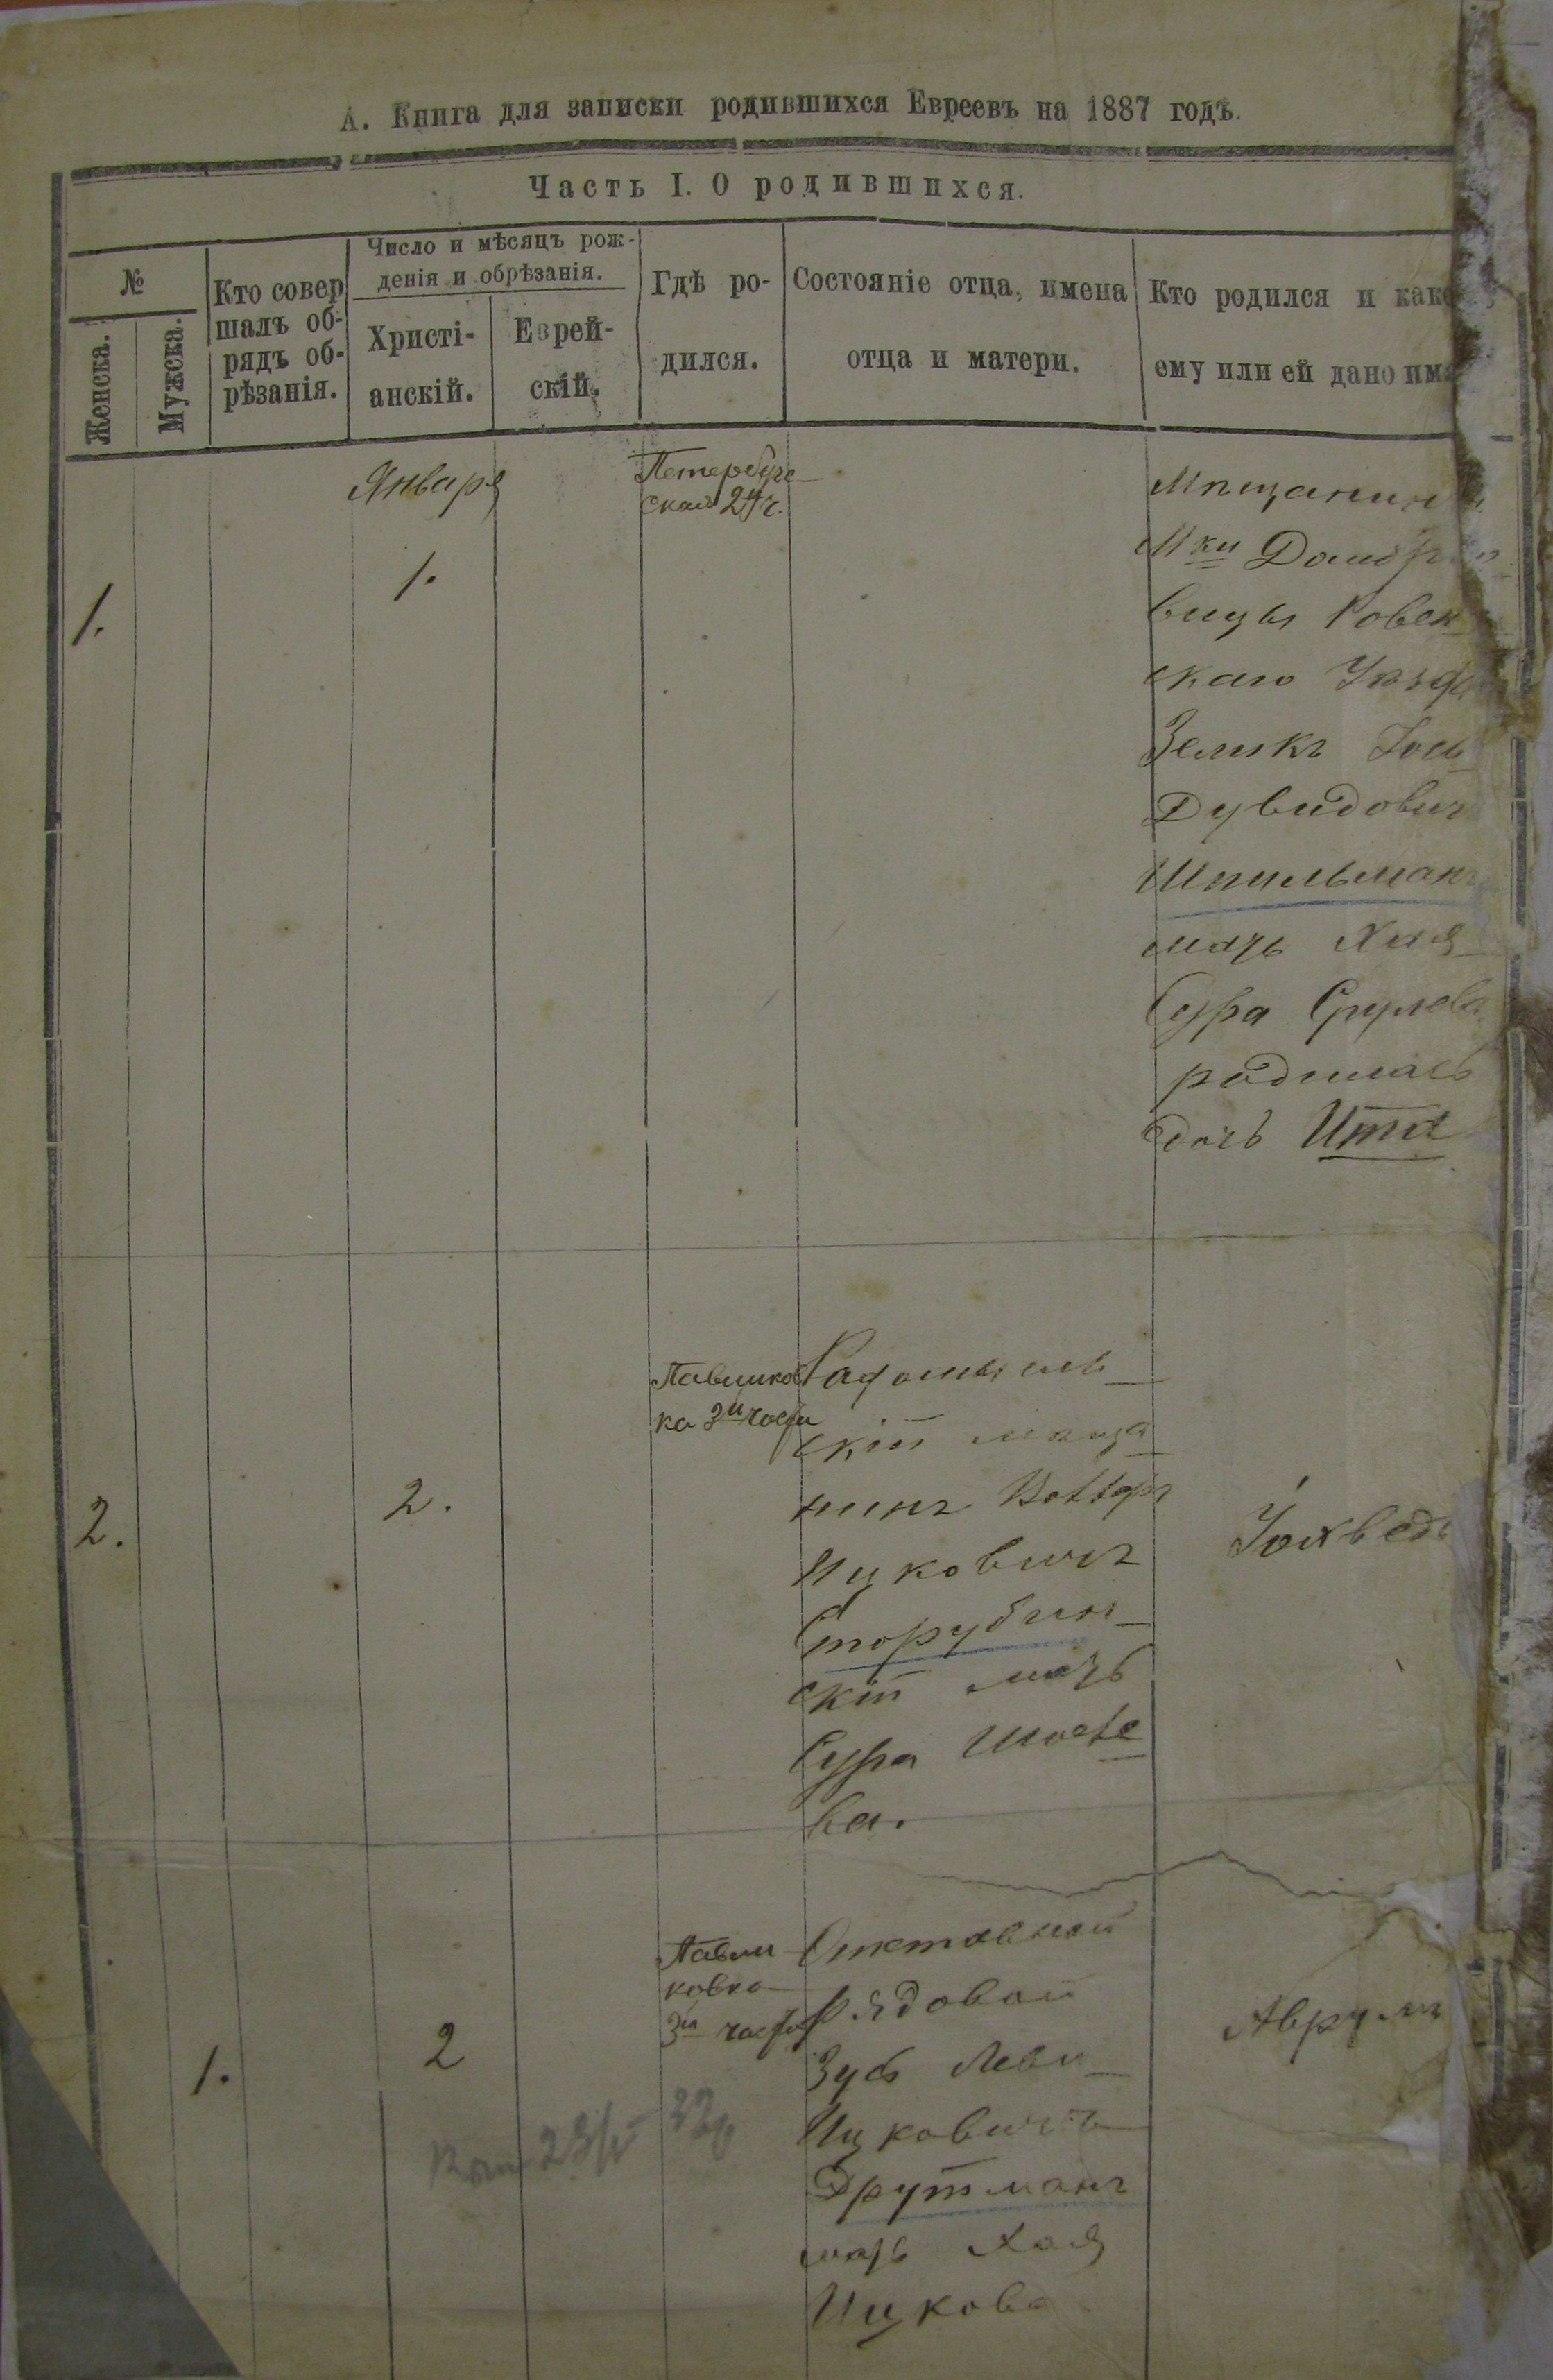 А. Книга для записки родившихся Евреевъ на 1887 годъ.
Часть I. О родившихся.
№
Женска.
Мужска.
Кто совер
шалъ об-
рядъ об-
рѣзанія.
Число и мѣсяцъ рож-
денія и обрѣзанія.
Христі-
анскій.
Еврей-
скій.
Гдѣ ро-
дился.
Состояніе отца, имена
отца и матери.
Кто родился и како
ему или ей дано имя
1.
Января
1.
Петербург-
ская 2й ч.
Мѣщанин
М ки Домбр
вицы Ровен
скаго Уѣзда
Зеликъ Іось
Дувидович
Шпильманъ
мать Хая
Сура Срулева
родилась
дочь Итта
2.
2.
Павликов
ка 3й части
Радомысль-
скій мѣща
нинъ
Ицковичъ
Сторубин-
скій мать
Сура
ва.
Іохведъ
1.
2
Павли
ковка
3й части
Отставной
рядовой
Зусь Лейб
Ицковичъ
Друтманъ
мать Хая
Ицкова
Аврумъ